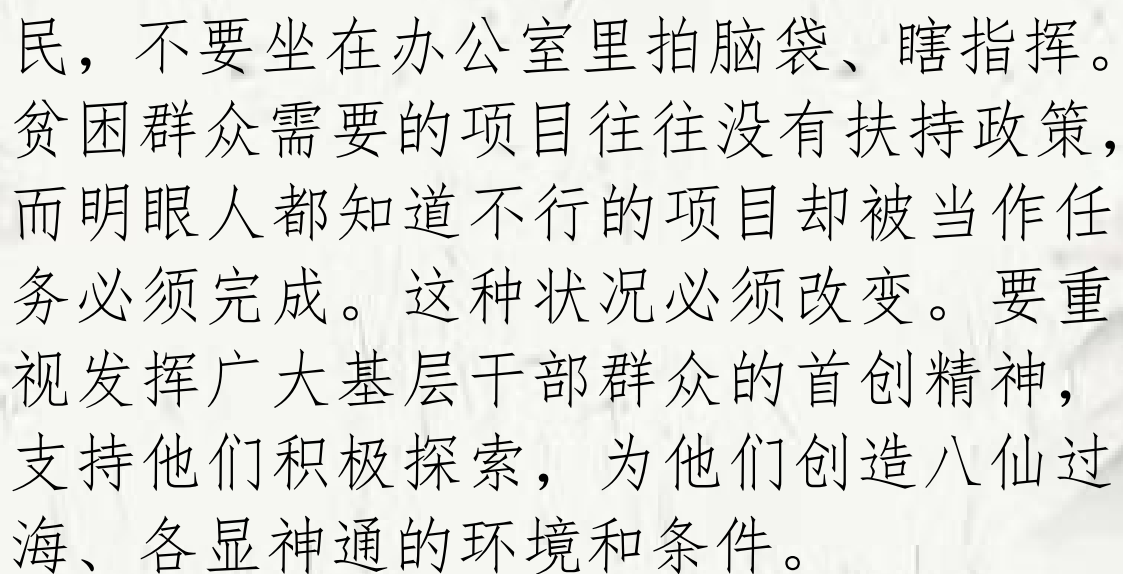 民，不要坐在办公室里拍脑袋、瞎指挥。
贫困群众需要的项目往往没有扶持政策，
而明眼人都知道不行的项目却被当作任
务必须完成。这种状况必须改变。要重
视发挥广大基层干部群众的首创精神，
支持他们积极探索，为他们创造八仙过
海、各显神通的环境和条件。